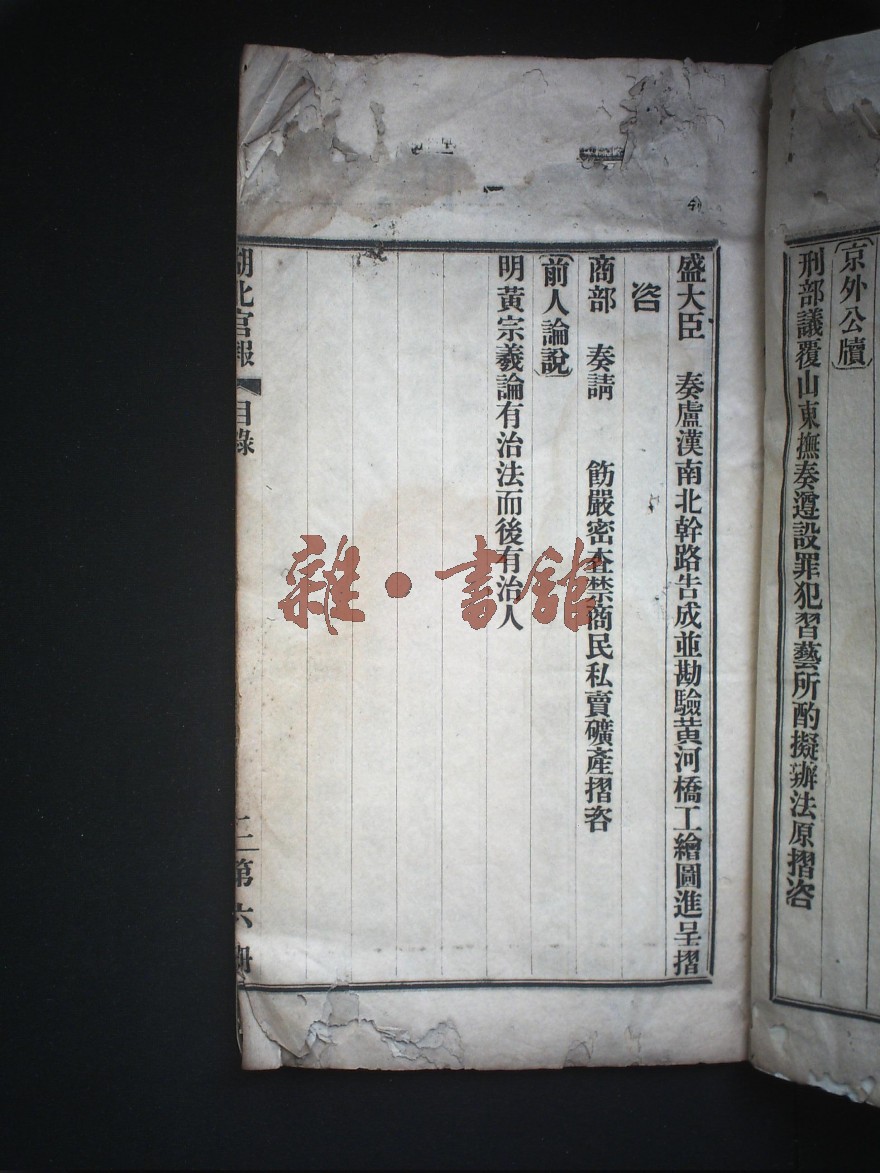 〔京外公牘〕
刑部議覆山東撫奏遵設罪犯習藝所酌擬辦法原摺咨
盛大臣　奏盧漢南北幹路告成並勘驗黄河橋工繪圖進呈摺
咨
商部　奏請　飭嚴密查禁商民私賣礦產摺咨
〔前人論說〕
明黃宗羲論有治法而後有治人
湖北官報　目錄　二　第六冊
雜·書館